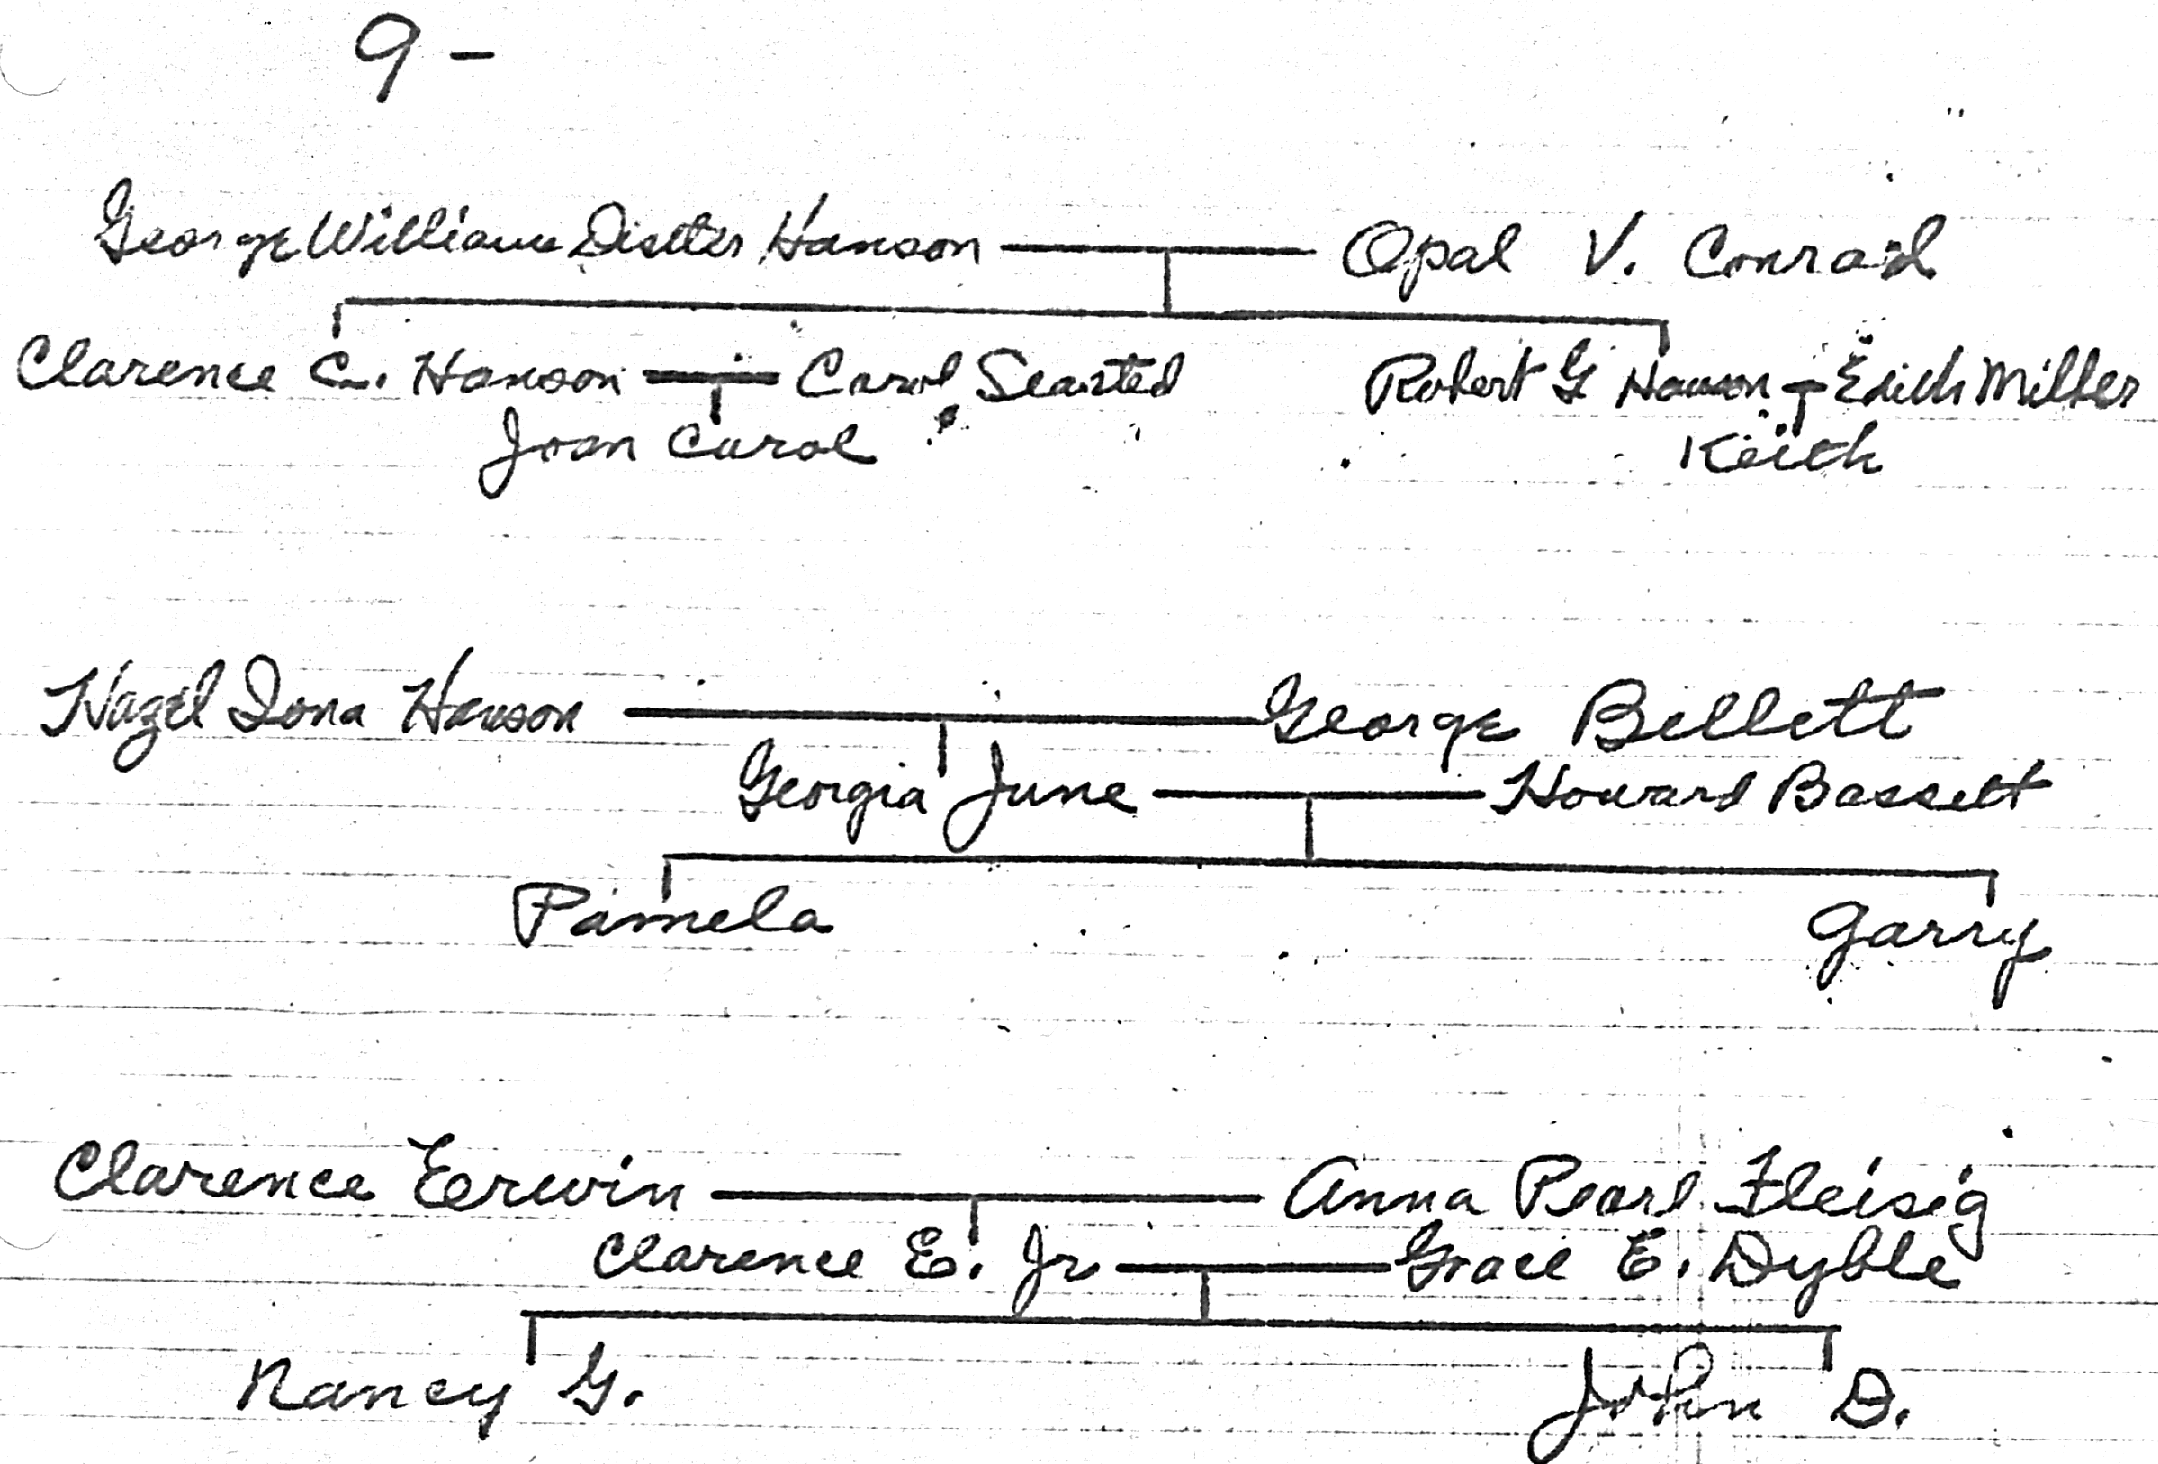 9 -
George William Hanson Opal V. Conrad
Clarence C. Hanson Carol Robert G Hanson Edith Miller
Joan Carol Keith
Hazel Iona Hanson George Bellett
Georgia June Howard Bassett
Pamela Garry
Clarence Erwin Anna Pearl Fleisig
Clarence E. Jr Grace E. Dyble
Nancy G. John D.